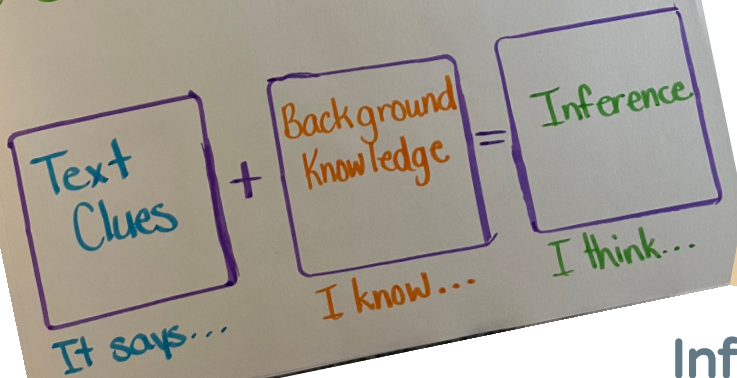 Text
Clues
+
Background
Knowledge
=
Inference
It says...
I know...
I think...
Inf